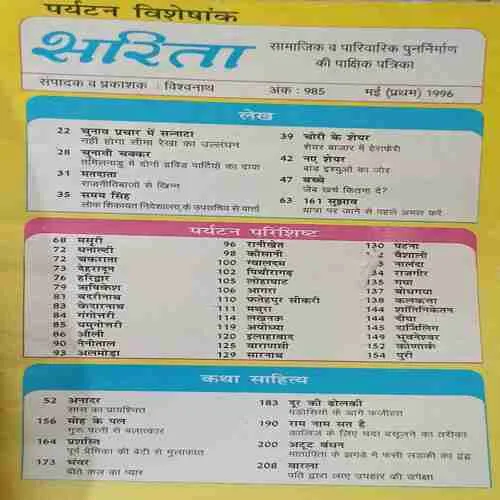 पर्यटन विशेषांक
सरिता
सामाजिक व पारिवारिक पुनर्निर्माण
की पाक्षिक पत्रिका
संपादक व प्रकाशक : विश्वनाथ
अंक : 985
मई (प्रथम) 1996
लेख
22 चुनाव प्रचार में सन्नाटा
नहीं होगा सीमा रेखा का उल्लंघन
28 चुनावी चक्कर
तमिलनाडु में दोनों द्रविड़ पार्टियों का दावा
31 मतदाता
राजनीतिबाजों से खिन्न
35 समय सिंह
लोक शिकायत निदेशालय के उपसचिव से वार्ता
39 चोरी के शेयर
शेयर बाजार में हेराफेरी
42 नए शेयर
बांड इश्युओं का जोर
47 बच्चे
जेब खर्च कितना दें?
63 161 सुझाव
यात्रा पर जाने से पहले अमल करें
पर्यटन परिशिष्ट
68 मसूरी
72 धनोल्टी
72 चकराता
73 देहरादून
76 हरिद्वार
79 ऋषिकेश
81 बदरीनाथ
83 केदारनाथ
84 गंगोत्तरी
85 यमुनोत्तरी
86 औली
90 नैनीताल
93 अलमोड़ा
96 रानीखेत
98 कौसानी
100 ग्वालदम
102 पिथौरागढ़
105 लोहाघाट
106 आगरा
110 फतेहपुर सीकरी
111 मथुरा
114 लखनऊ
119 अयोध्या
120 इलाहाबाद
125 वाराणसी
129 सारनाथ
130 पटना
वैशाली
नालंदा
34 राजगीर
135 गया
137 बोधगया
138 कलकत्ता
144 शांतिनिकेतन
144 दीघा
145 दार्जिलिंग
149 भुवनेश्वर
152 कोणार्क
154 पुरी
कथा साहित्य
52 अनादर
सास का प्रायश्चित
156 मोह के पल
गुरु पत्नी से बलात्कार
164 प्रशस्ति
पूर्व प्रेमिका की बेटी से मुलाकात
173 भंवर
बीते कल का प्यार
183 दूर की ढोलकी
पड़ोसियों के आगे फजीहत
190 राम नाम सत है
कालिज के लिए चंदा वसूलने का तरीका
200 अटूट बंधन
मातापिता के झगड़े में फंसी लड़की का द्वंद्व
208 वारला
पति द्वारा लाए उपहार की उपेक्षा